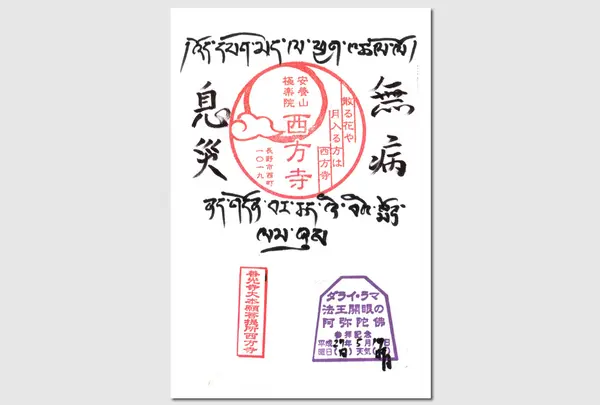 འོད་དཔག་མེད་ལ་ཕྱག་འཚལ་ལོ།
無病
息災
散る花や
月入る方は
西方寺
安養山
極楽院
西方寺
長野市西町
一〇一九
ནད་གདོན་བར་ཆད་ཞི་བའི་སྨོན་
ལམ་ཞུས
善光寺大本願菩提所西方寺
ダライ・ラマ
法王開眼の
阿弥陀佛
参拝記念
平成27年5月17日
曜日(日)天気(晴)